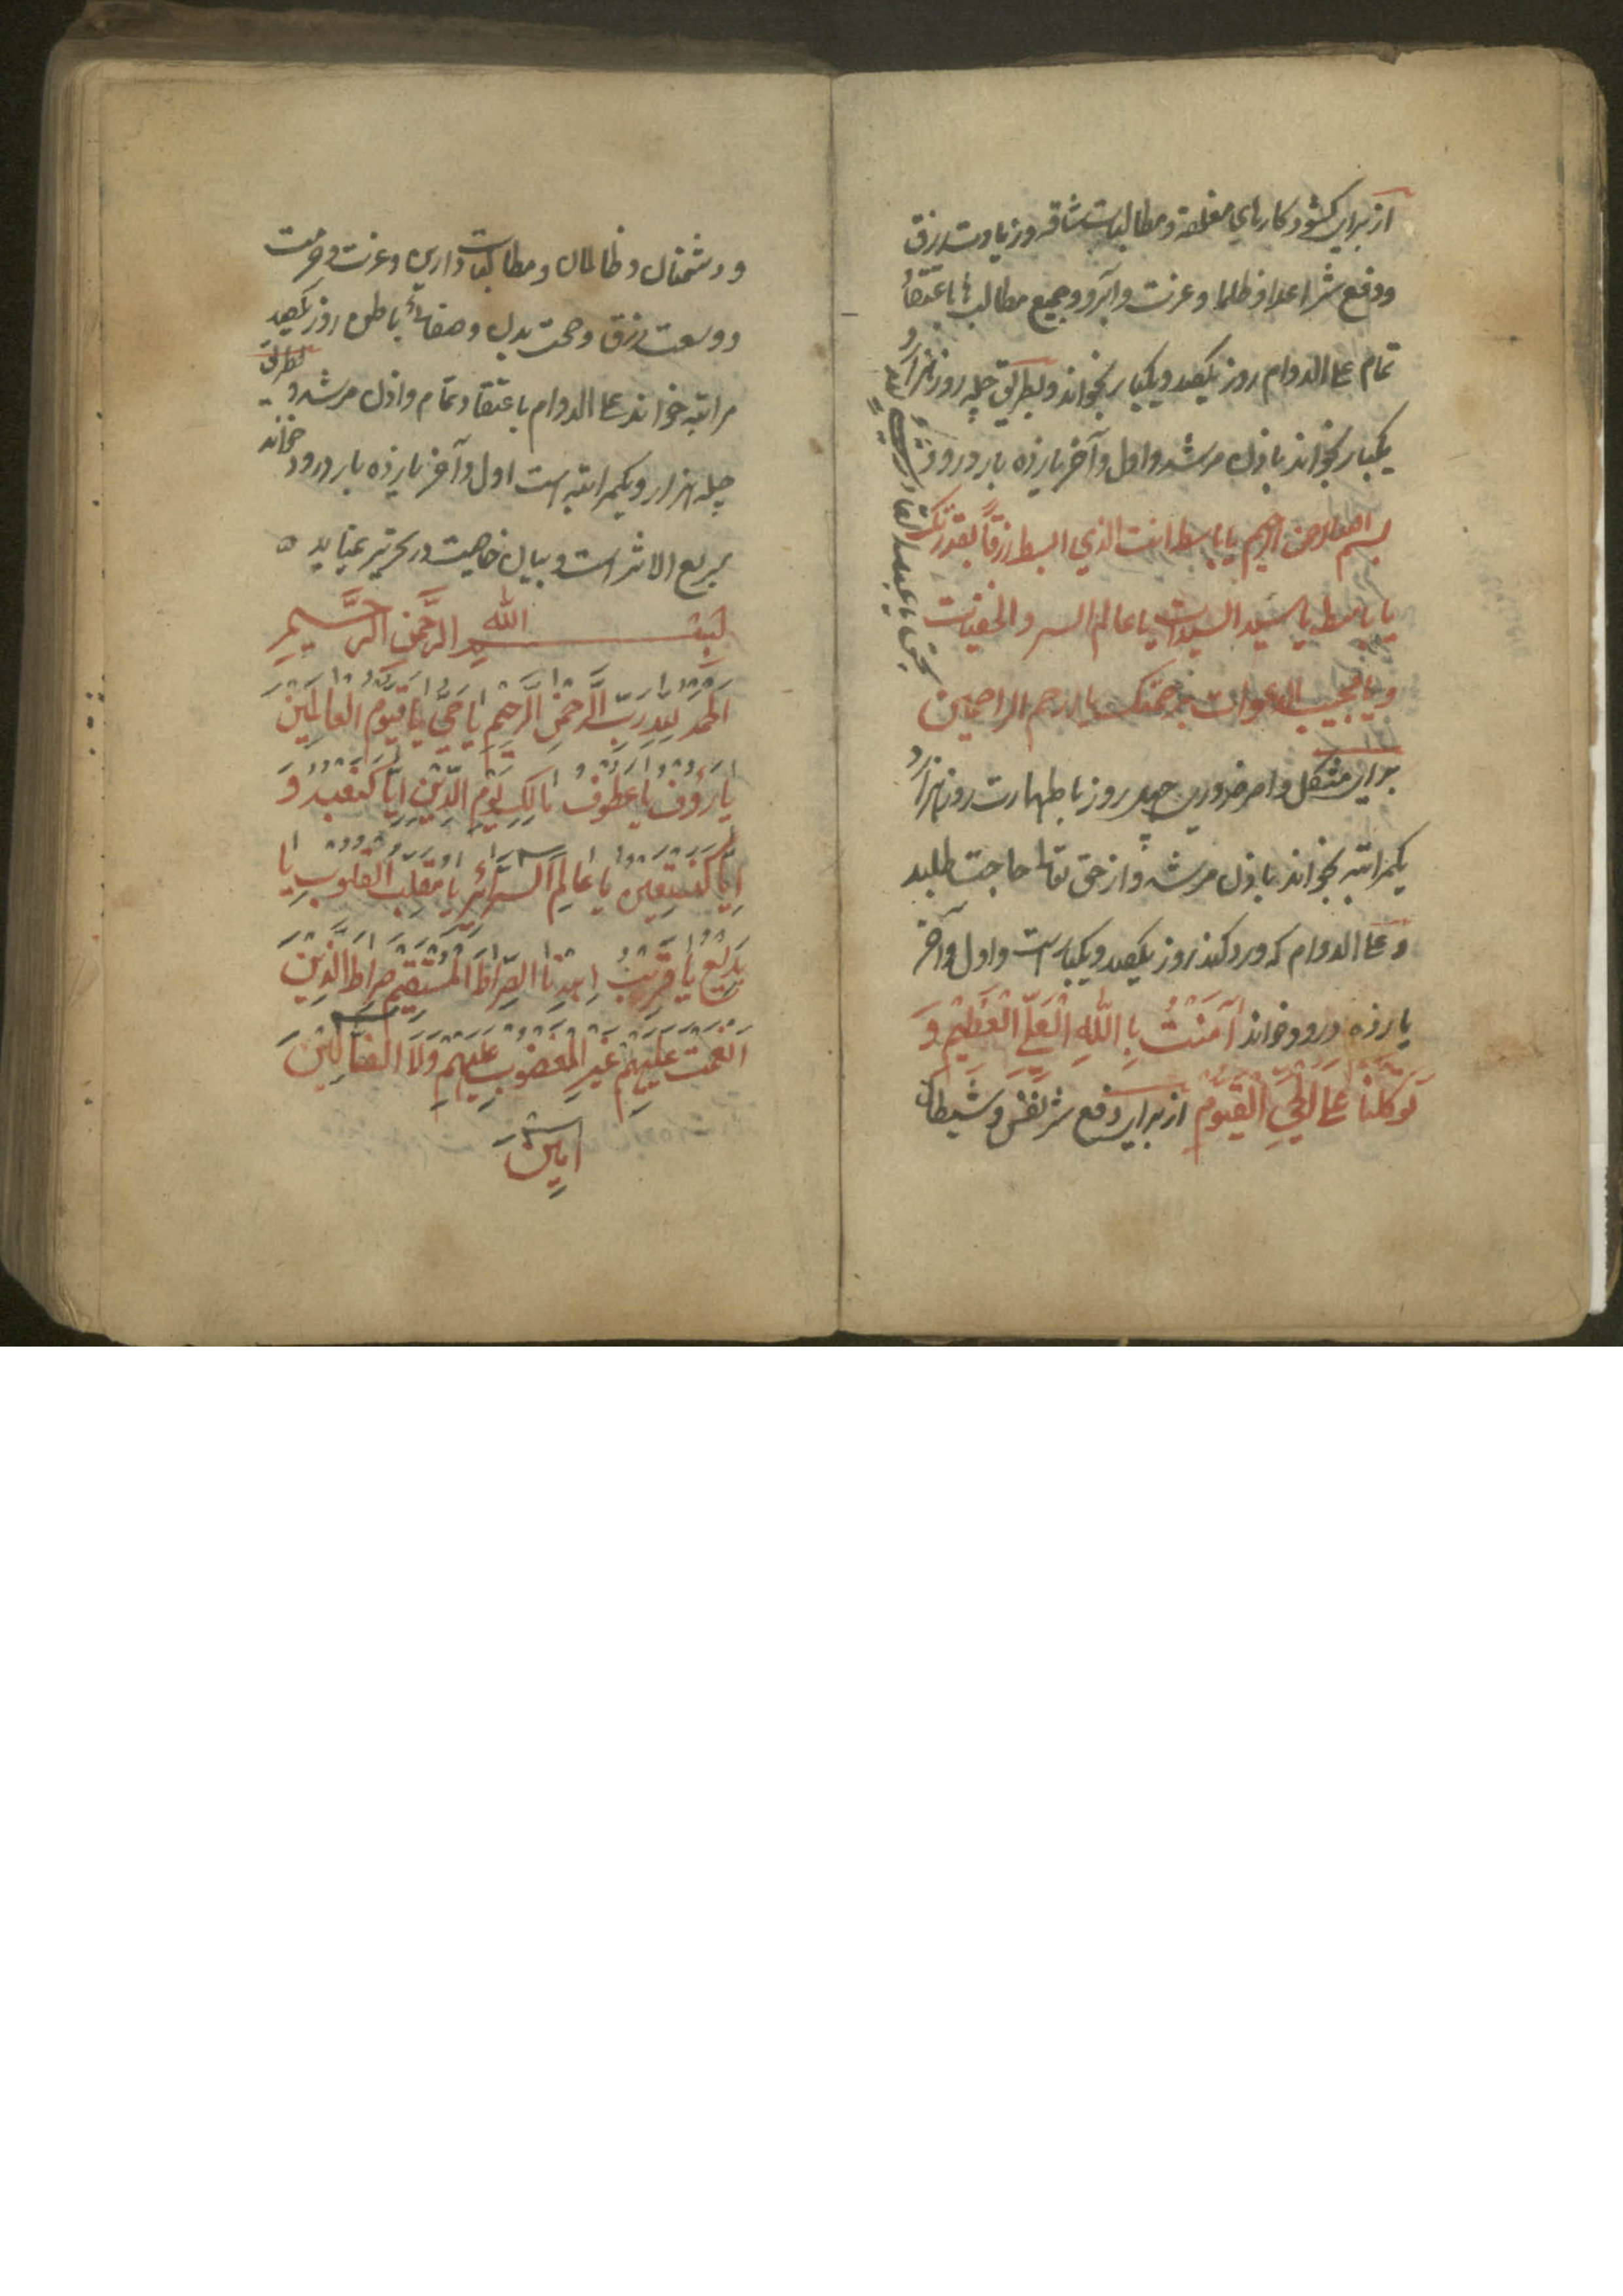 از برای کشود کارهای مغلقه و مطالبات شاقه و زیادت رزق
ودفع شر اعدا و ظلما و عزت و آبرو و جمیع مطالب ها باعتقاد
تمام علی الدوام روز یکصد و یکبار بخواند و بطریق چله روز هزار و
یکبار بخواند باذن مرشد و اول و آخر یازده بار درود
بسم الله الرحمن الرحیم یا باسط انت الذی البسط رزقاً بقدرتک
یا باسط یا سید السیدات یا عالم السر والخفیات
ویا مجیب الدعوات برحمتک یا ارحم الراحمین
بحق یا عبد القادر
برای مشکل و امر ضروری چهل روز با طهارت روز هزار و
یکمراتبه بخواند باذن مرشد و از حق تعالی حاجت طلبد
و علی الدوام که ورد کند روز یکصد و یکبار است و اول و آخر
یازده درود خواند آمَنْتُ بِاللّٰهِ الْعَلِیِّ الْعَظِیْمِ وَ
تَوَکَّلْنَا عَلَی الْحَیِّ الْقَیُّومِ از برای دفع شر نفس و شیطان
و دشمنان و ظالمان و مطالبات دارین و عزت و حرمت
و وسعت رزق و صحت بدن و صفائ باطن روز یکصد
مراتبه خواند علی الدوام باعتقاد تمام و اذن مرشد و بطریق
چله هزار و یکمراتبه است اول و آخر یازده بار درود خواند
سریع الاثر است و بیان خاصیت در تحریر نمیاید ه
بِسْمِ اللّٰهِ الرَّحْمٰنِ الرَّحِيْمِ
اَلْحَمْدُ لِلّٰهِ رَبِّ الرَّحْمٰنِ الرَّحِيْمِ يَا حَيُّ يَا قَيُّوْمُ الْعَالَمِيْنَ
يَا رَؤُفُ يَا عَطُوْفُ مَالِكِ يَوْمِ الدِّيْنِ اِيَّاكَ نَعْبُدُ وَ
اِيَّاكَ نَسْتَعِيْنُ يَا عَالِمَ السَّرَآئِرِ يَا مُقَلِّبَ الْقُلُوْبِ يَا
بَدِيْعُ يَا قَرِيْبُ اِهْدِنَا الصِّرَاطَ الْمُسْتَقِيْمَ صِرَاطَ الَّذِيْنَ
اَنْعَمْتَ عَلَيْهِمْ غَيْرِ الْمَغْضُوْبِ عَلَيْهِمْ وَلَا الضَّآلِّيْنَ
اٰمِيْنَ